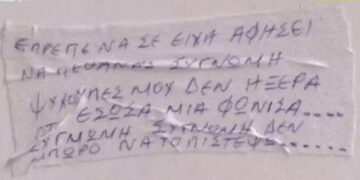 ΕΠΡΕΠΕ ΝΑ ΣΕ ΕΙΧΑ ΑΦΗΣΕΙ
ΝΑ ΠΕΘΑΝΕΙΣ ΣΥΓΝΩΜΗ
ΨΥΧΟΥΛΕΣ ΜΟΥ ΔΕΝ ΗΞΕΡΑ
ΟΤΙ ΕΣΩΣΑ ΜΙΑ ΦΩΝΙΣΑ....
ΣΥΓΝΩΜΗ ΣΥΓΝΩΜΗ ΔΕΝ
ΜΠΩΡΟ ΝΑ ΤΟ ΠΙΣΤΕΨΩ......